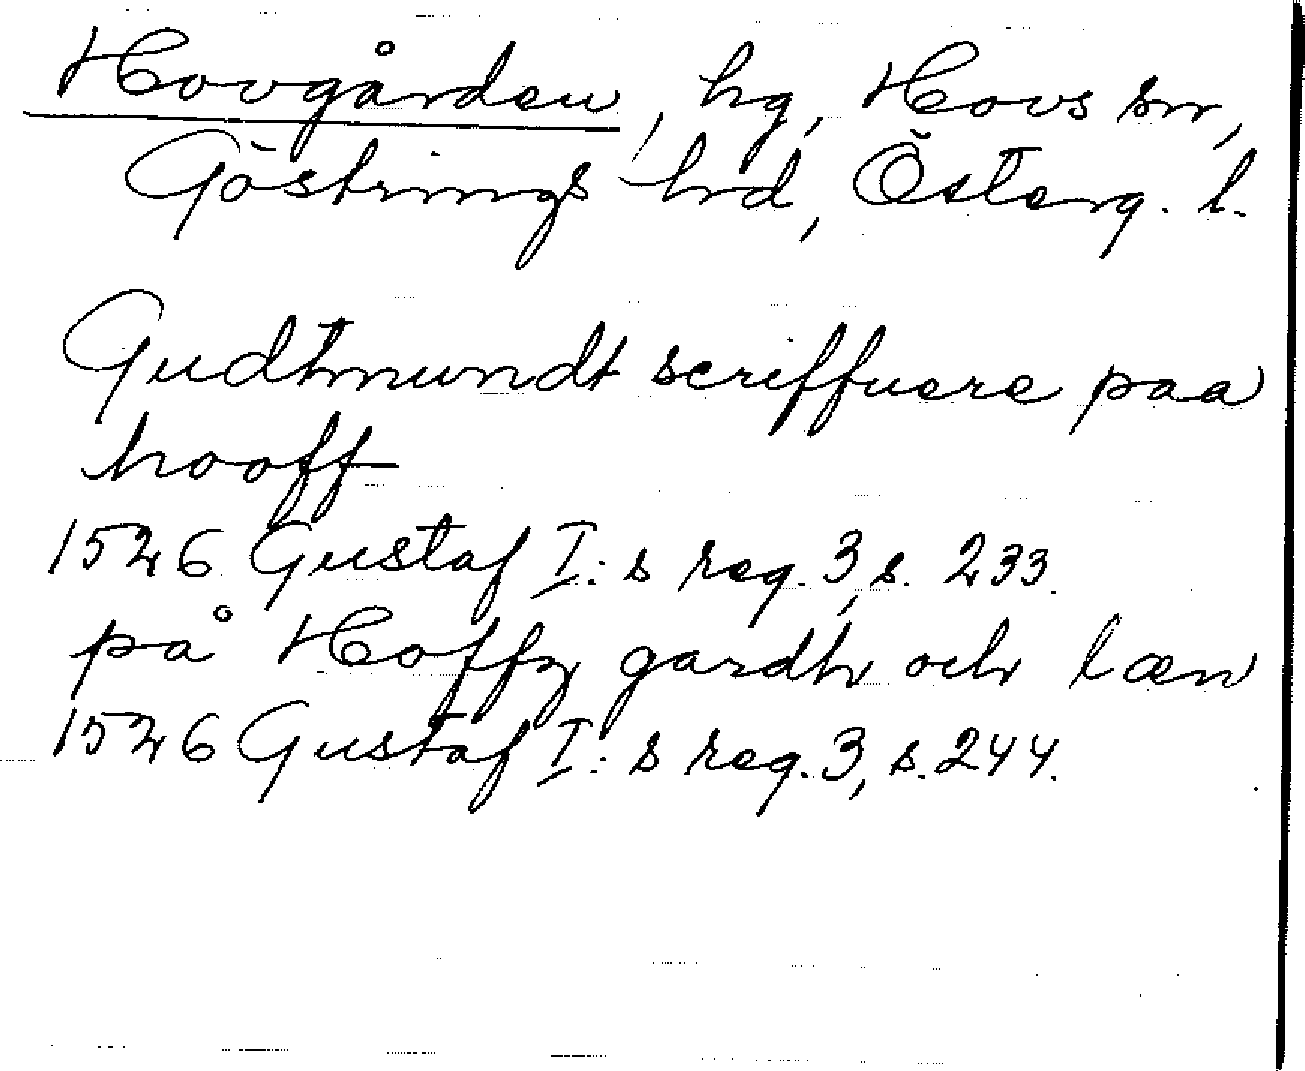 Hovgården, hg, Hovs sn,
Göstrings hd, Österg. l.
Gudhmundt scriffuere paa
hooff
1526 Gustaf I:s reg. 3, s. 233.
på Hoffz gardh och læn
1526 Gustaf I:s reg. 3, s. 244.